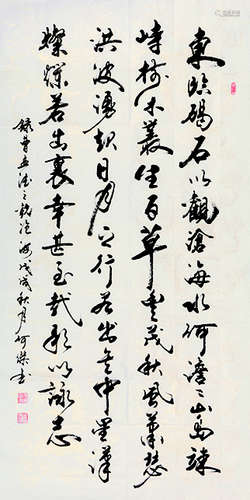 東臨碣石以觀滄海水何澹〻山島竦
峙樹木叢生百草豐茂秋風蕭瑟
洪波湧起日月之行若出其中星漢
燦爛若出裏幸甚至哉歌以詠志
錄曹孟德之觀滄海戊戌秋月何書